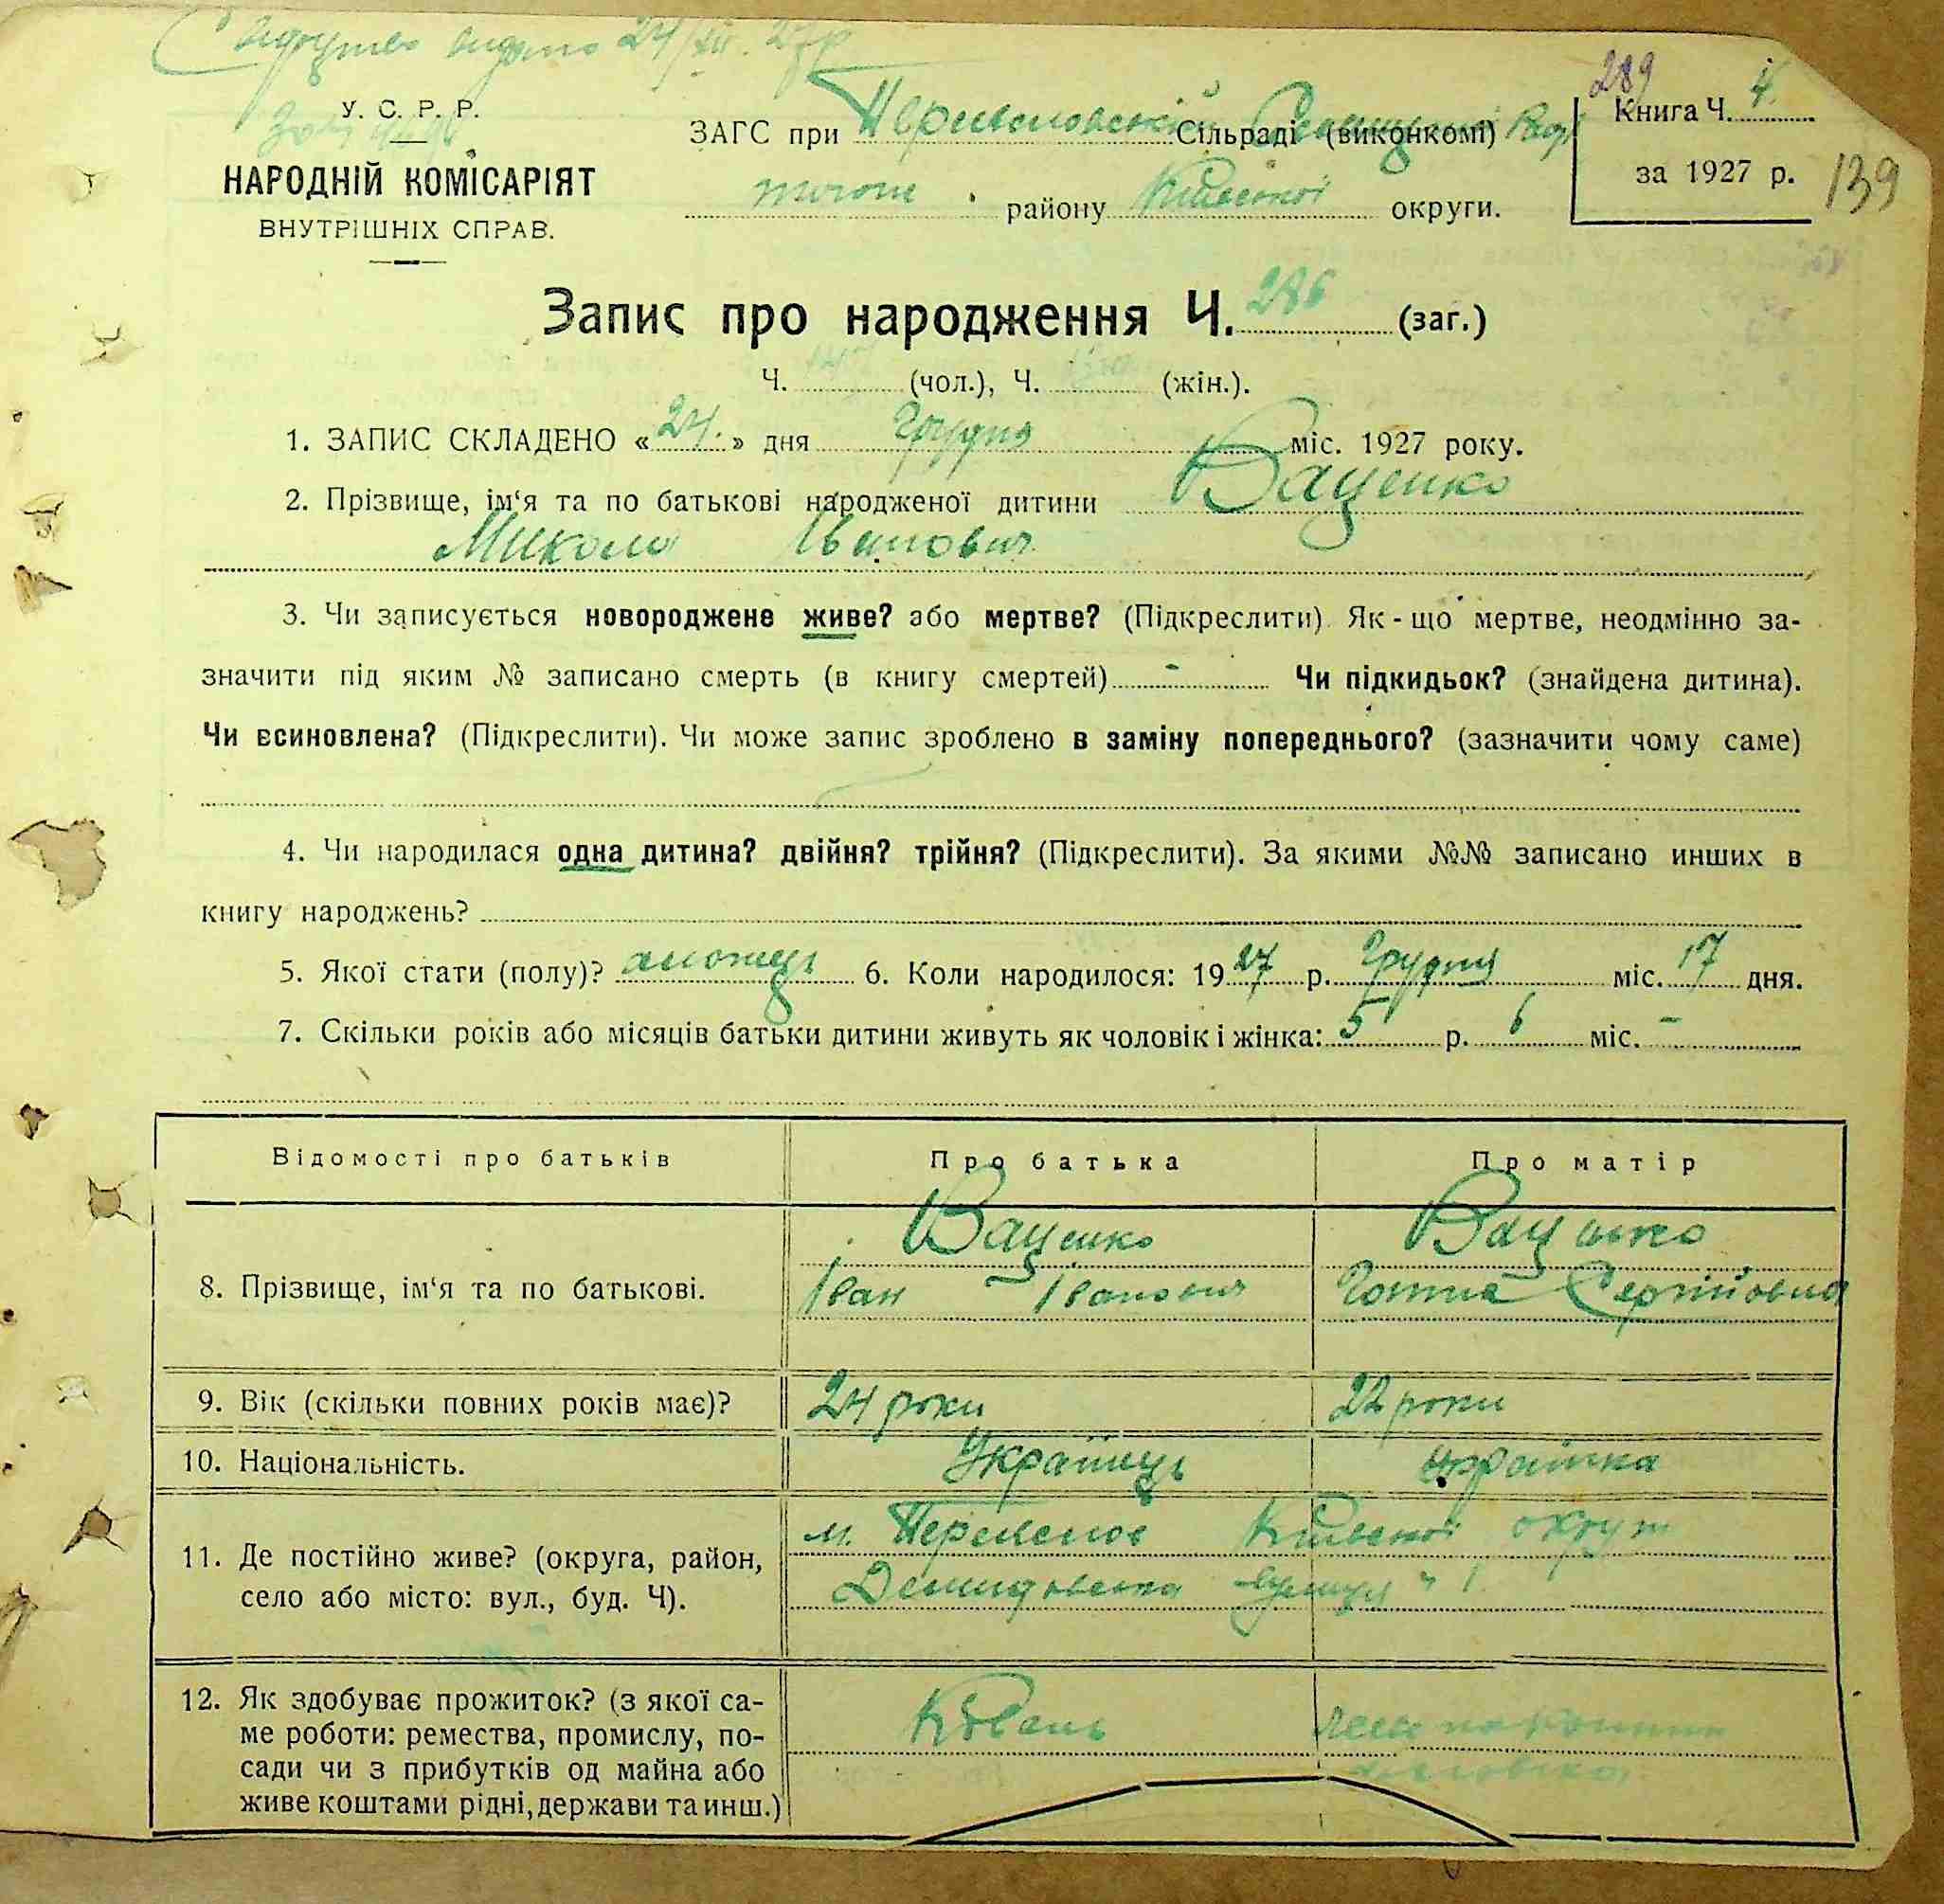 видано 24/XII. 27р
У. С. Р. Р.
НАРОДНІЙ КОМІСАРІЯТ
ВНУТРІШНІХ СПРАВ.
289
Книга Ч. 4.
за 1927 р.
139
ЗАГС при Сільраді (виконкомі)
району Київської округи.
Запис про народження Ч. 286 (заг.)
Ч. (чол.), Ч. (жін.).
1. ЗАПИС СКЛАДЕНО «24.» дня Грудня міс. 1927 року.
2. Прізвище, ім‘я та по батькові народженої дитини Ваценко
Микола Іванович
3. Чи записується новороджене живе? або мертве? (Підкреслити). Як-що мертве, неодмінно за-
значити під яким № записано смерть (в книгу смертей) - Чи підкидьок? (знайдена дитина).
Чи всиновлена? (Підкреслити). Чи може запис зроблено в заміну попереднього? (зазначити чому саме)
4. Чи народилася одна дитина? двійня? трійня? (Підкреслити). За якими №№ записано инших в
книгу народжень?
5. Якої стати (полу)? 6. Коли народилося: 1927 р. Грудня міс. 17 дня.
7. Скільки років або місяців батьки дитини живуть як чоловік і жінка: 5 р. 6 міс. -
Відомості про батьків Про батька Про матір
8. Прізвище, ім‘я та по батькові.
Ваценко
Іван Іванович
Ваценко
Сергіївна
9. Вік (скільки повних років має)? 24 роки 22 роки
10. Національність. Українець українка
11. Де постійно живе? (округа, район,
село або місто: вул., буд. Ч).
м. Переяслов Київської округи
вулиця ч 1
12. Як здобуває прожиток? (з якої са-
ме роботи: ремества, промислу, по-
сади чи з прибутків од майна або
живе коштами рідні, держави та инш.)
Коваль